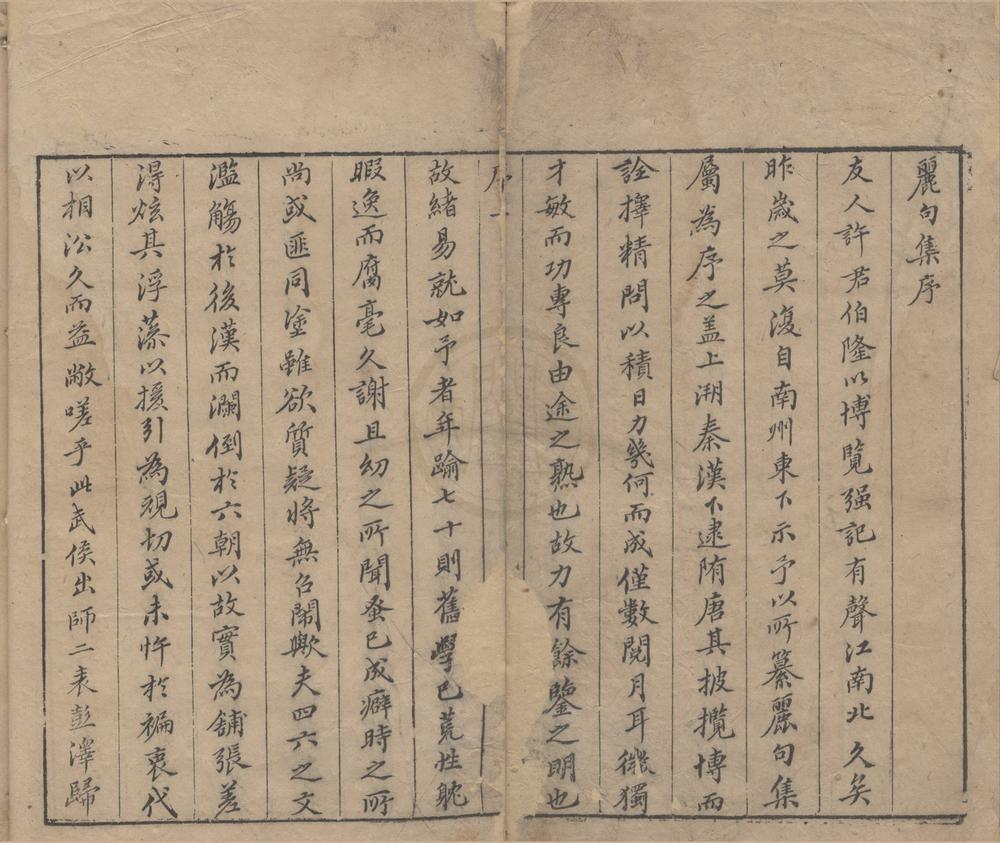 麗句集序
友人許君伯隆以博覽强記有聲江南北久矣
昨歲之莫復自南州東下示予以所纂麗句集
屬為序之盖上溯秦漢下逮隋唐其披攬博而
詮擇精問以積日力幾何而成僅數閱月耳微獨
才敏而功專良由途之熟也故力有餘鑒之明也
序 一
故緒易就如予者年踰七十則舊學已荒性躭
暇逸而腐毫久謝且幼之所聞蚤已成癖時之所
尚或匪同塗雖欲質疑將無召鬧歟夫四六之文
濫觴於後漢而瀾倒於六朝以故實為鋪張差
得炫其浮藻以援引為覘切或未忤於褊衷代
以相沿久而益敝嗟乎此武侯出師二表彭澤歸